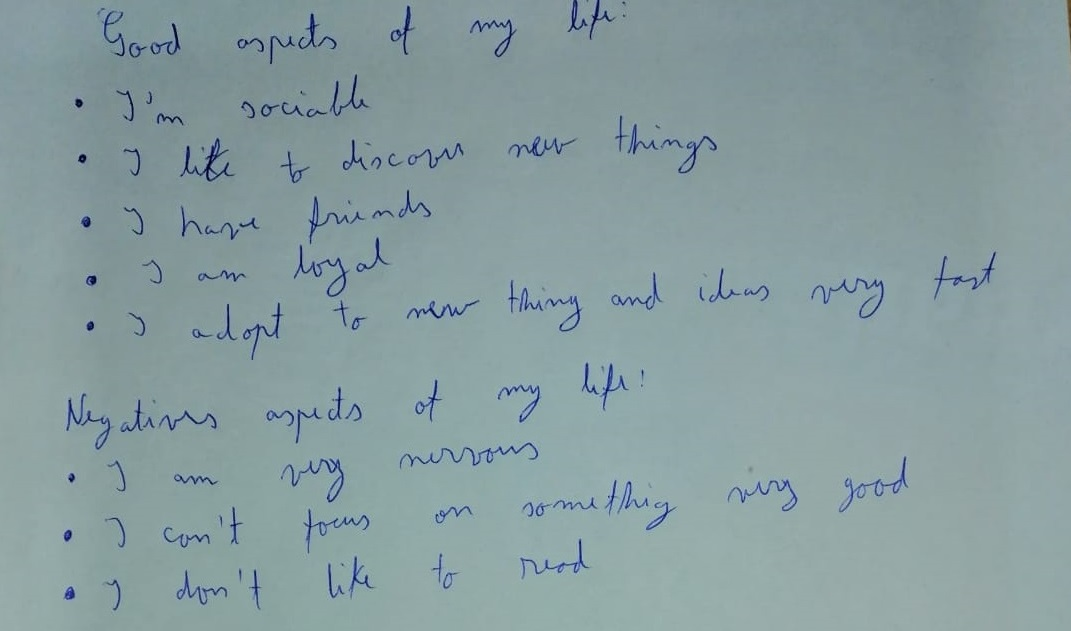 Good aspects of my life:
• I'm sociable
• I like to discover new things
• I have friends
• I am loyal
• I adopt to new thing and ideas very fast
Negatives aspects of my life:
• I am very nervous
• I can't focus on somethig very good
• I don't like to read